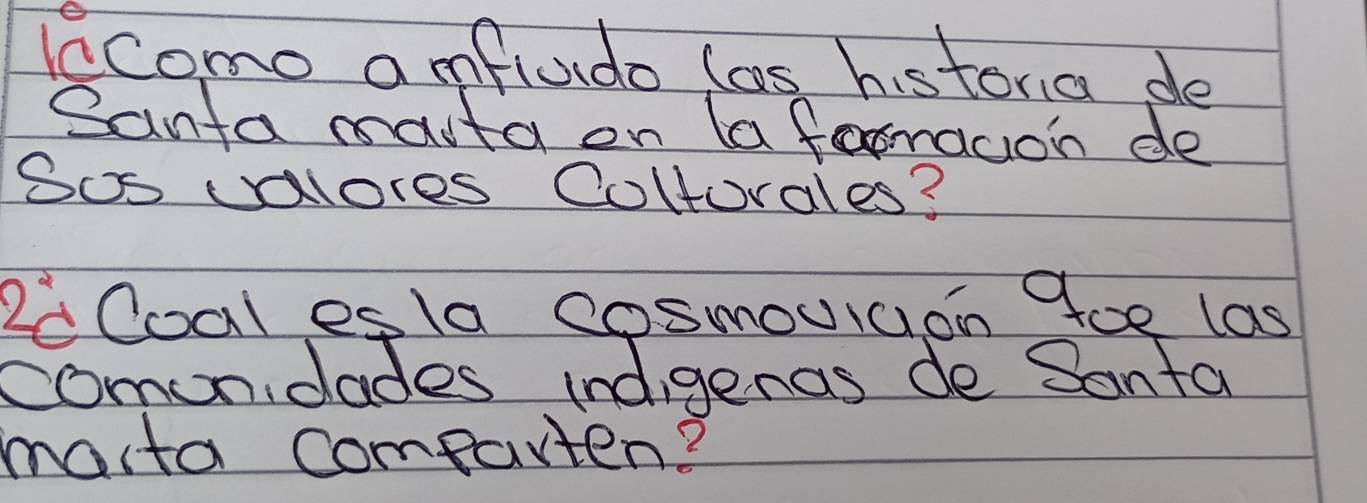 1¿Como a infiuido las historia de
Santa marta en la formación de
Sus valores Colturales?
2¿Coal es la cosmovición que las
comunidades indigenas de Santa
marta comparten?